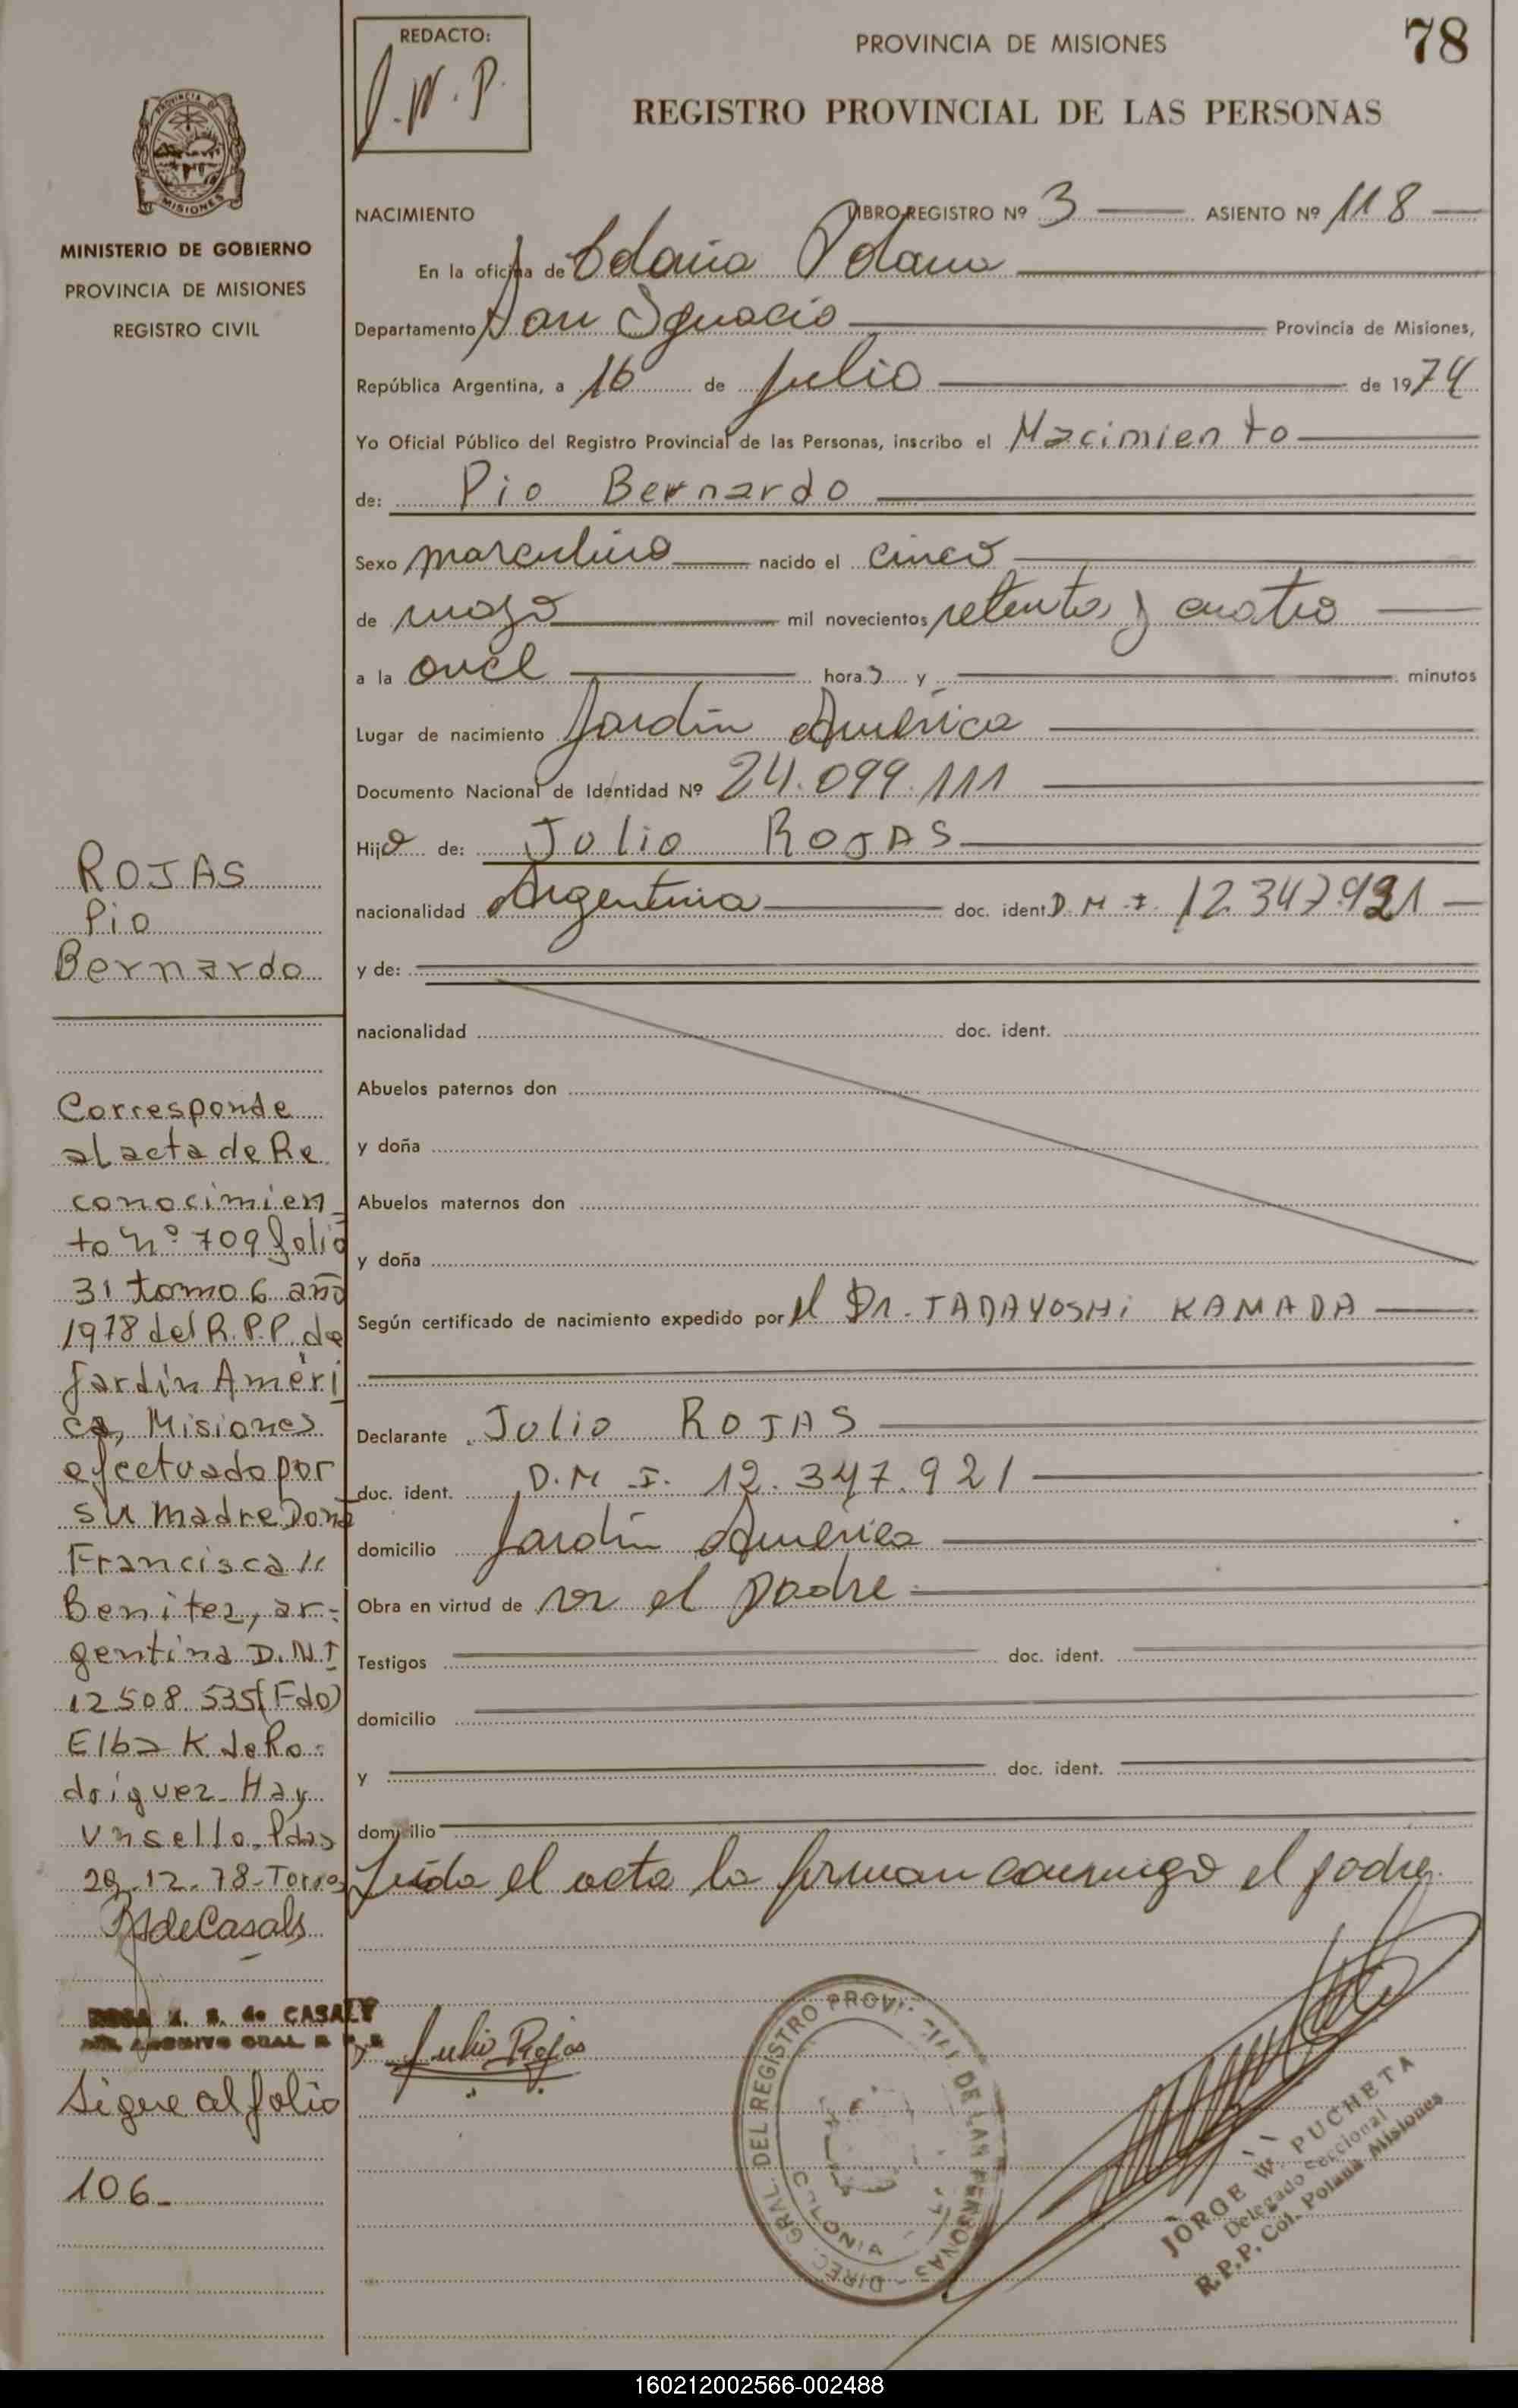 REDACTO:
J.W.P.
PROVINCIA DE MISIONES
78
REGISTRO PROVINCIAL DE LAS PERSONAS
PROVINCIA DE MISIONES
MINISTERIO DE GOBIERNO
PROVINCIA DE MISIONES
REGISTRO CIVIL
NACIMIENTO LIBRO REGISTRO Nº 3 ASIENTO Nº 118
En la oficina de Colonia Polana
Departamento San Ignacio Provincia de Misiones,
República Argentina, a 16 de julio de 1974
Yo Oficial Público del Registro Provincial de las Personas, inscribo el Nacimiento
de: Pio Bernardo
Sexo masculino nacido el cinco
de mayo mil novecientos setenta y cuatro
a la once horas y minutos
Lugar de nacimiento Jardín América
Documento Nacional de Identidad Nº 24.099.111
Hijo de: Julio ROJAS
nacionalidad Argentina doc. ident. D.M.I. 12.347.921
y de:
nacionalidad doc. ident.
Abuelos paternos don
y doña
Abuelos maternos don
y doña
Según certificado de nacimiento expedido por el Dr. TADAYOSHi KAMADA
Declarante Julio ROJAS
doc. ident. D.M.I. 12.347.921
domicilio Jardín América
Obra en virtud de ser el padre
Testigos doc. ident.
domicilio
y doc. ident.
domicilio
Leída el acta la firman conmigo el padre.
Julio Rojas
DIREC. GRAL. DEL REGISTRO PROVINCIAL DE LAS PERSONAS
COLONIA
JORGE W. PUCHETA
Delegado Seccional
R.P.P. Col. Polana Misiones
ROJAS
Pio
Bernardo
Corresponde
al acta de Re
conocimien
to Nº 709 folio
31 tomo 6 año
1978 del R.P.P. de
Jardín Améri
ca, Misiones
efectuado por
su madre Doña
Francisca
Benitez, ar-
gentina D.N.I
12508.535 (Fdo)
Elba K de Ro-
driguez- Hay
un sello. Pdas
29-12-78-Torres
de Casals
ROSA de CASALS
ARCHIVO GRAL R P P
Sigue al folio
106-
160212002566-002488